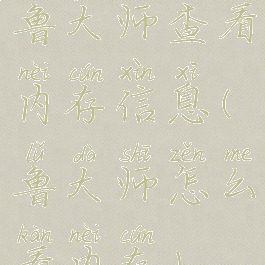 鲁大师查看
nèi cún xìn xī
内存信息(
lǔ dà shī zěn me
鲁大师怎么
kàn nèi cún
看内存)